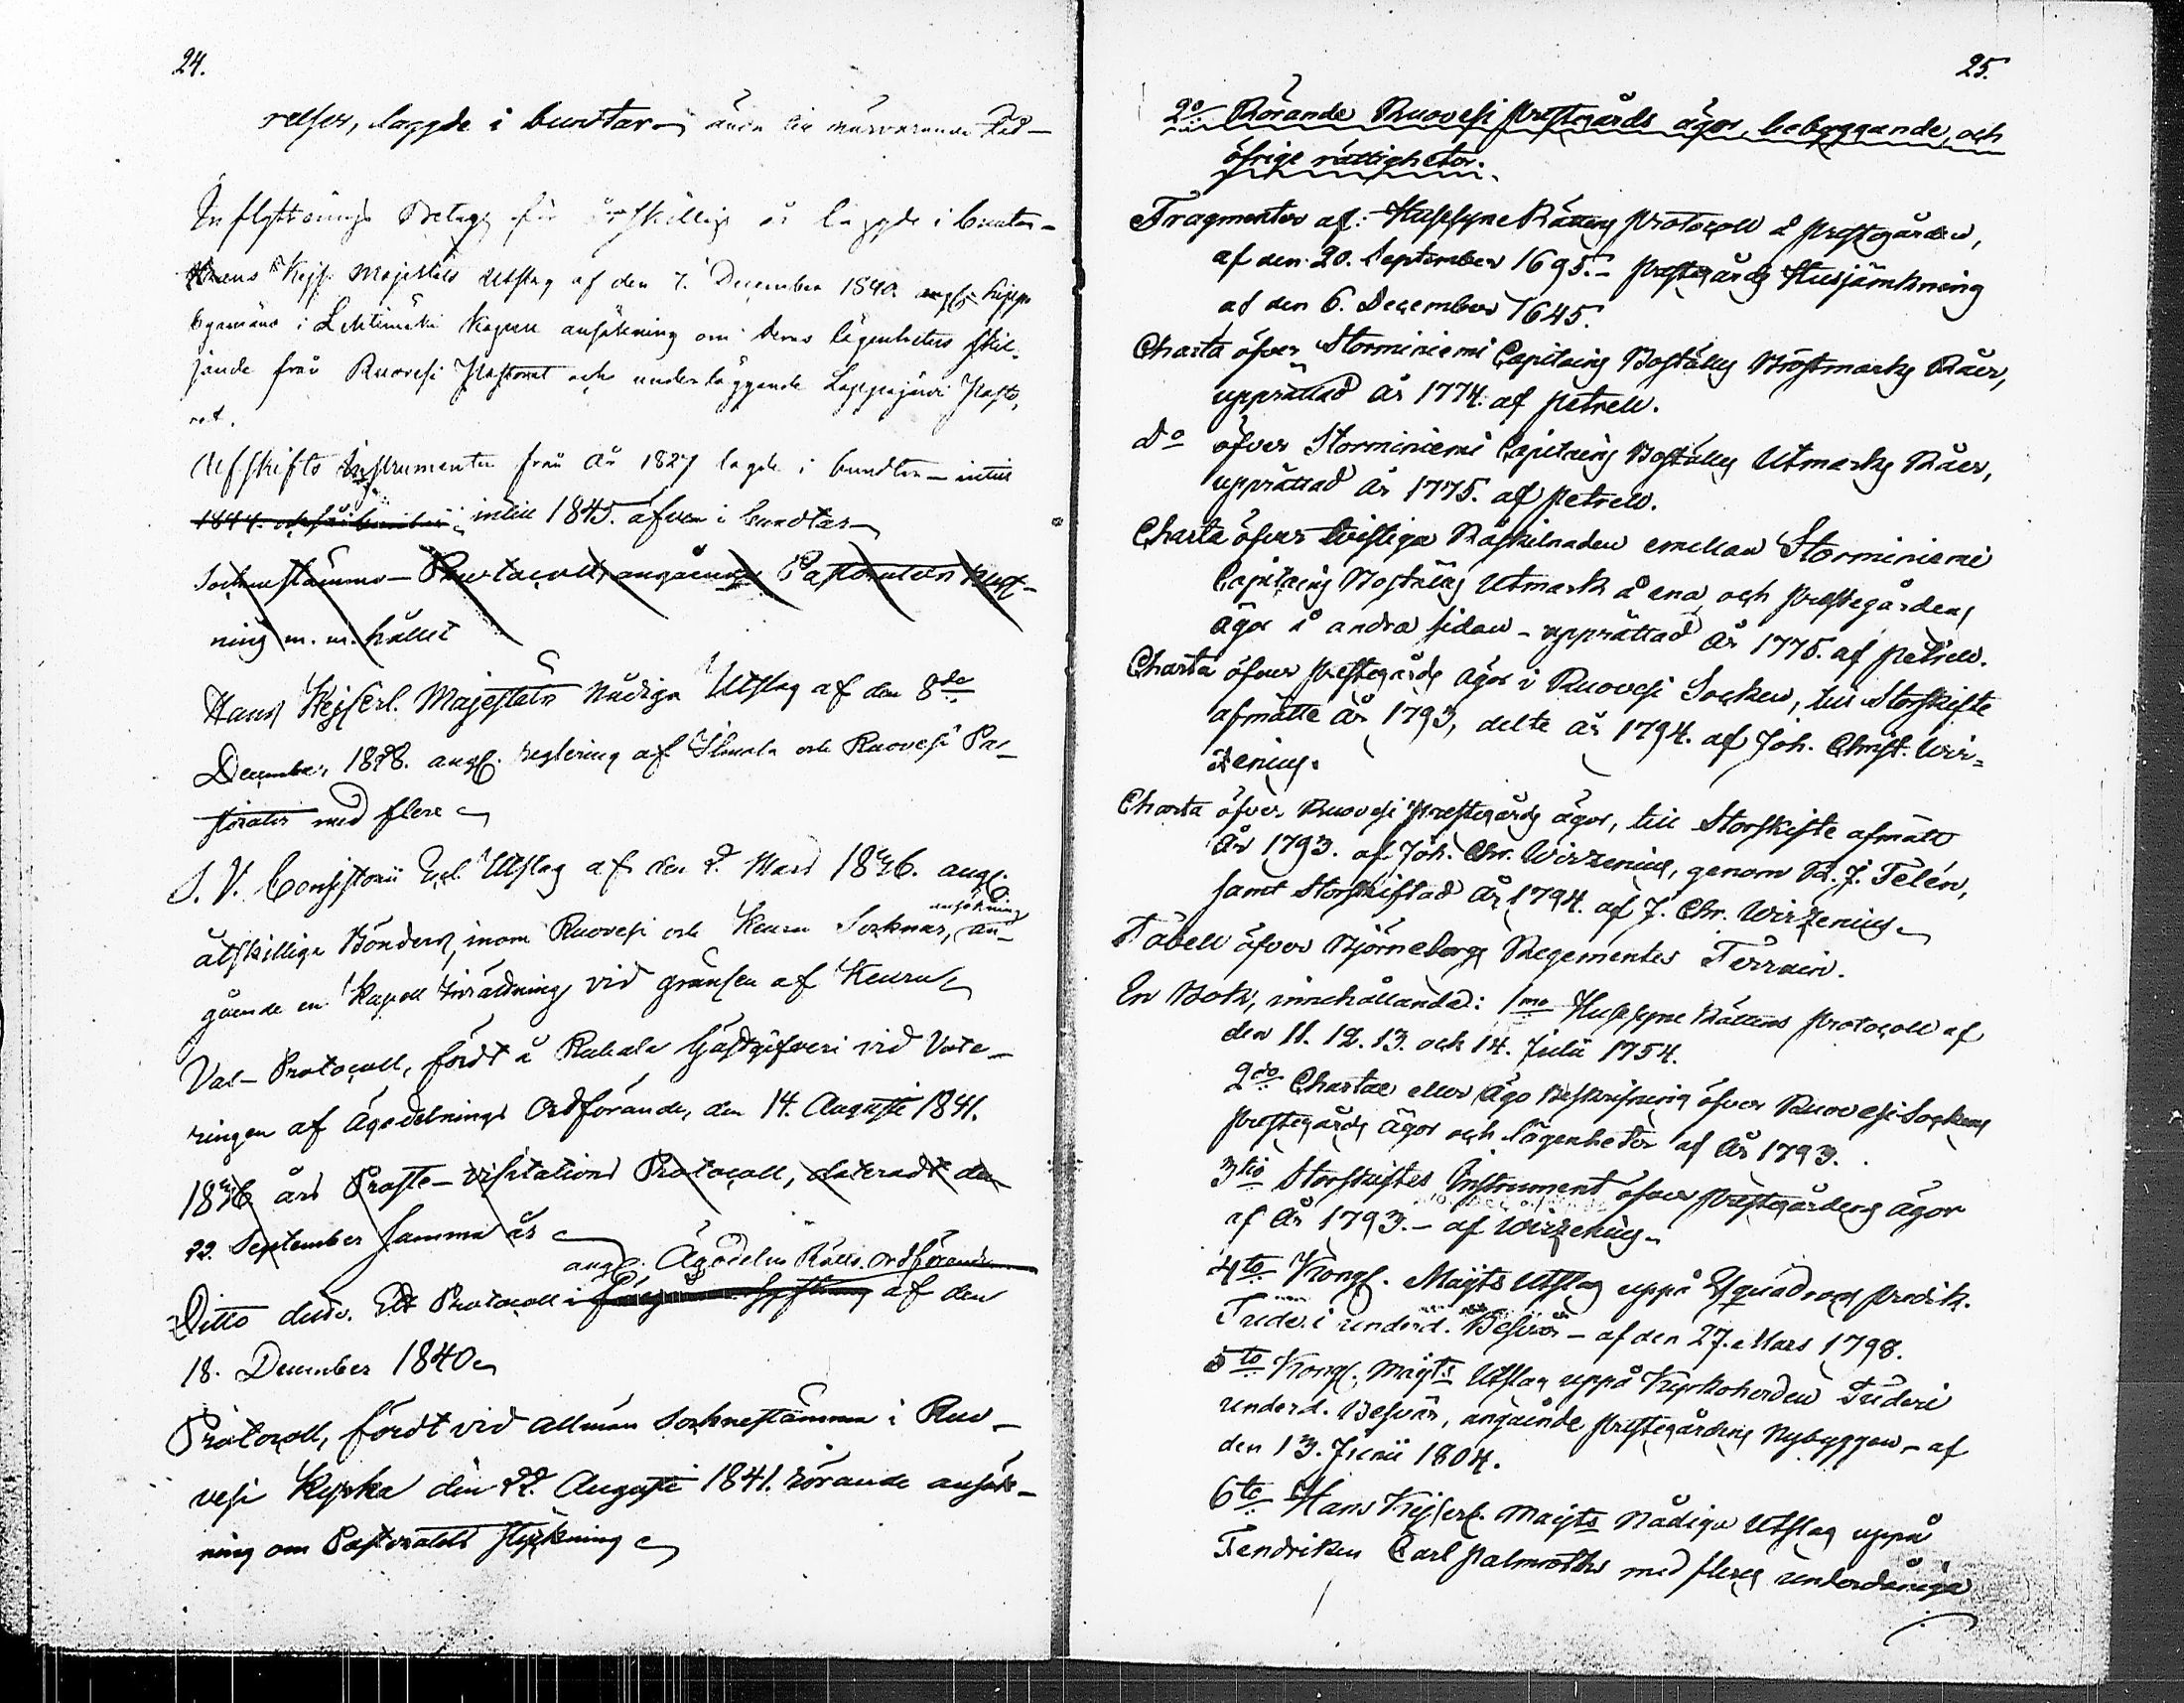 24.
relser, laggde i buntar – ända till närvarande Tid –
Inflyttnings Betyg för åtskillige år laggde i buntar –
Hans Kejs. Majestäts Utslag af den 7. December 1840. ang:
byamäns i Lehtimäki Kapell ansökning om deras lägenheters skil-
jande från Ruovesi Pastorat och underläggande Lappajärvi Pasto-
rat.
Utskifts Instrumenter från År 1827 lagde i bundtar – intill
1844. intill 1845. äfven i bundtar
Sockne stämmo – Protocoll, angående Pastoratets
ning m. m. hållit
Hans Kejserl. Majestäts Nådiga Utslag af den 8de
December 1828. ang. reglering af och Ruovesi Pas-
storater med flere
S. V. Consistorii Eccl. Utslag af den 2. Mars 1836. ang.
ansökning
åtskillige Bönders, inom Ruovesi och Keuru Soknar, an-
gående en Kapell Inrättning vid gränsen af Keuru
Val – Protocoll, fördt å Gästgifveri vid Vote-
ringen af Ägodelnings Ordförande, den 14. Augusti 1841.
1836 års Proste – visitations Protocoll, dateradt den
22. September samma år
ang. Ägodeln. Rätts. Ordförande
Ditto dito. Ett Protocoll i af den
18. December 1840
Protocoll, fördt vid allmän Socknestämma i Ruo-
vesi Kyrka den 22. Augusti 1841. rörande ansök-
ning om Pastoratets styckning
25.
2o Rörande Ruovesi Prestegårds ägor, bebyggande, och
öfrige rättigheter.
Fragmenter af: Husesyne Rättens Protocoll å Prestegården,
af den 20. September 1695. – Prestegårds Husjämkning
af den 6. December 1645.
Charta öfver Storminiemi Capitains Boställs Råer,
upprättad År 1774. af Petrell.
do öfver Storminiemi Capitains Boställs Utmarks Råer,
upprättad År 1775. af Petrell.
Charta öfver tvistiga Råskilnaden emellan Storminiemi
Capitains Boställs Utmark å ena, och Prestegårdens
Ägor å andra sidan – upprättad År 1775. af Petrell.
Charta öfver Prestegårds Ägor i Ruovesi Socken, till Storskifte
afmätte År 1793, delte år 1794. af Joh. Christ. Wir-
zenius.
Charta öfver Ruovesi Prestegårds ägor, till Storskifte afmätt
År 1793. af Joh. Chr. Wirzenius, genom R. J. Telén,
samt Storskiftad År 1794. af J. Chr. Wirzenius
Tabell öfver Björneborgs Regementes Terrain.
En Bok, innehållande: 1mo Husesyne Rättens Protocoll af
den 11. 12. 13. och 14. Julii 1754.
2do Chartae eller Ägo Beskrifning öfver Ruovesi Sockens
Prestegårds Ägor och lägenheter af År 1793.
3tio Storskiftes Instrument öfver Prestegårdens Ägor
af År 1793. – af Wirzenius
4to Kongl. Majts Utslag uppå Esquadrons Predik.
Tuderi underd. Besvär – af den 27. Mars 1798.
5to Kongl. Majts Utslag uppå Kyrkoherden Tuderi
underd. Besvär, angående Prestegårdens Nybyggen – af
den 13. Junii 1804.
6to Hans Kejserl. Majts Nådiga Utslag uppå
Fendriken Carl Palmroths med fleres underdåniga